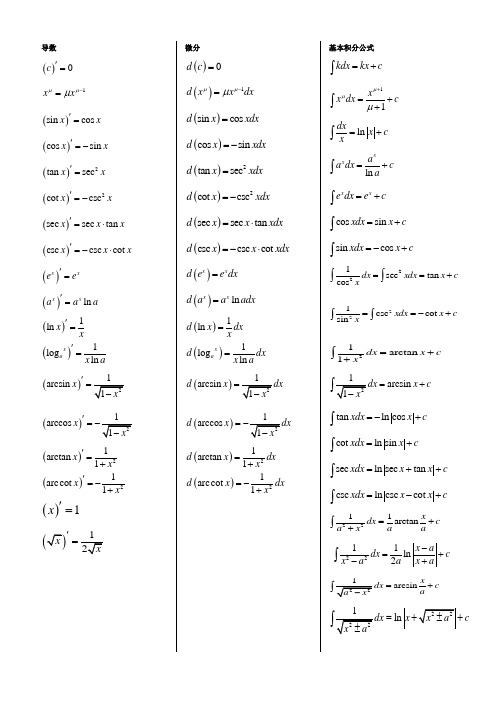 导数
(c)′ = 0
x^μ = μx^(μ−1)
(sin x)′ = cos x
(cos x)′ = −sin x
(tan x)′ = sec² x
(cot x)′ = −csc² x
(sec x)′ = sec x · tan x
(csc x)′ = −csc x · cot x
(e^x)′ = e^x
(a^x)′ = a^x ln a
(ln x)′ = 1/x
(log_a^x)′ = 1/(x ln a)
(arcsin x)′ = 1/√(1−x²)
(arccos x)′ = −1/√(1−x²)
(arctan x)′ = 1/(1+x²)
(arccot x)′ = −1/(1+x²)
(x)′ = 1
(√x)′ = 1/(2√x)
微分
d(c) = 0
d(x^μ) = μx^(μ−1)dx
d(sin x) = cos xdx
d(cos x) = −sin xdx
d(tan x) = sec² xdx
d(cot x) = −csc² xdx
d(sec x) = sec x · tan xdx
d(csc x) = −csc x · cot xdx
d(e^x) = e^x dx
d(a^x) = a^x ln adx
d(ln x) = 1/x dx
d(log_a^x) = 1/(x ln a) dx
d(arcsin x) = 1/√(1−x²) dx
d(arccos x) = −1/√(1−x²) dx
d(arctan x) = 1/(1+x²) dx
d(arccot x) = −1/(1+x²) dx
基本积分公式
∫kdx = kx + c
∫x^μ dx = x^(μ+1)/(μ+1) + c
∫dx/x = ln|x| + c
∫a^x dx = a^x/ln a + c
∫e^x dx = e^x + c
∫cos xdx = sin x + c
∫sin xdx = −cos x + c
∫1/cos² x dx = ∫sec² xdx = tan x + c
∫1/sin² x = ∫csc² xdx = −cot x + c
∫1/(1+x²) dx = arctan x + c
∫1/√(1−x²) dx = arcsin x + c
∫tan xdx = −ln|cos x| + c
∫cot xdx = ln|sin x| + c
∫sec xdx = ln|sec x + tan x| + c
∫csc xdx = ln|csc x − cot x| + c
∫1/(a²+x²) dx = 1/a arctan x/a + c
∫1/(x²−a²) dx = 1/(2a) ln|(x−a)/(x+a)| + c
∫1/√(a²−x²) dx = arcsin x/a + c
∫1/√(x²±a²) dx = ln|x + √(x²±a²)| + c